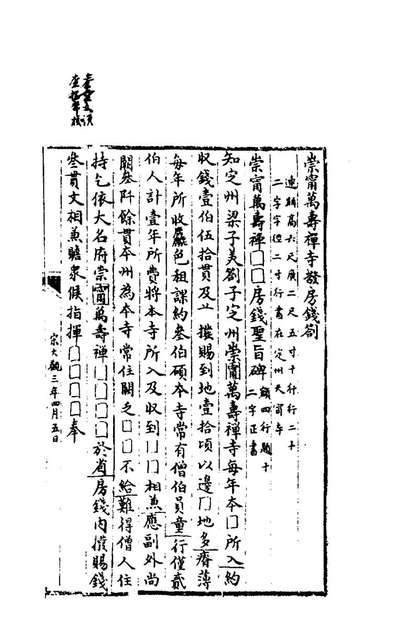 崇甯萬壽禪寺撥房錢劄
連額高六尺廣二尺五寸十行行二十
二字字徑二寸行書在定州天甯寺
崇甯萬壽禪□□房錢聖旨碑
額四行題十
二字正書
知定州梁子美劄子定州崇甯萬壽禪寺每年本□所入約
收錢壹伯伍拾貫及 撥賜到地壹拾頃以邊□地多瘠薄
每年所收 色租課約叁伯碩本寺常有僧伯員童行僅貳
伯人計壹年所費將本寺所入及收到□□相兼應副外尚
闕叁阡餘貫本州為本寺常住闕乏□□不給難得僧人住
持乞依大名府崇甯萬壽禪□□□□於省房錢內撥賜錢
叁貫文相兼贍衆候指揮□□□□奉
宗大觀三年四月五日